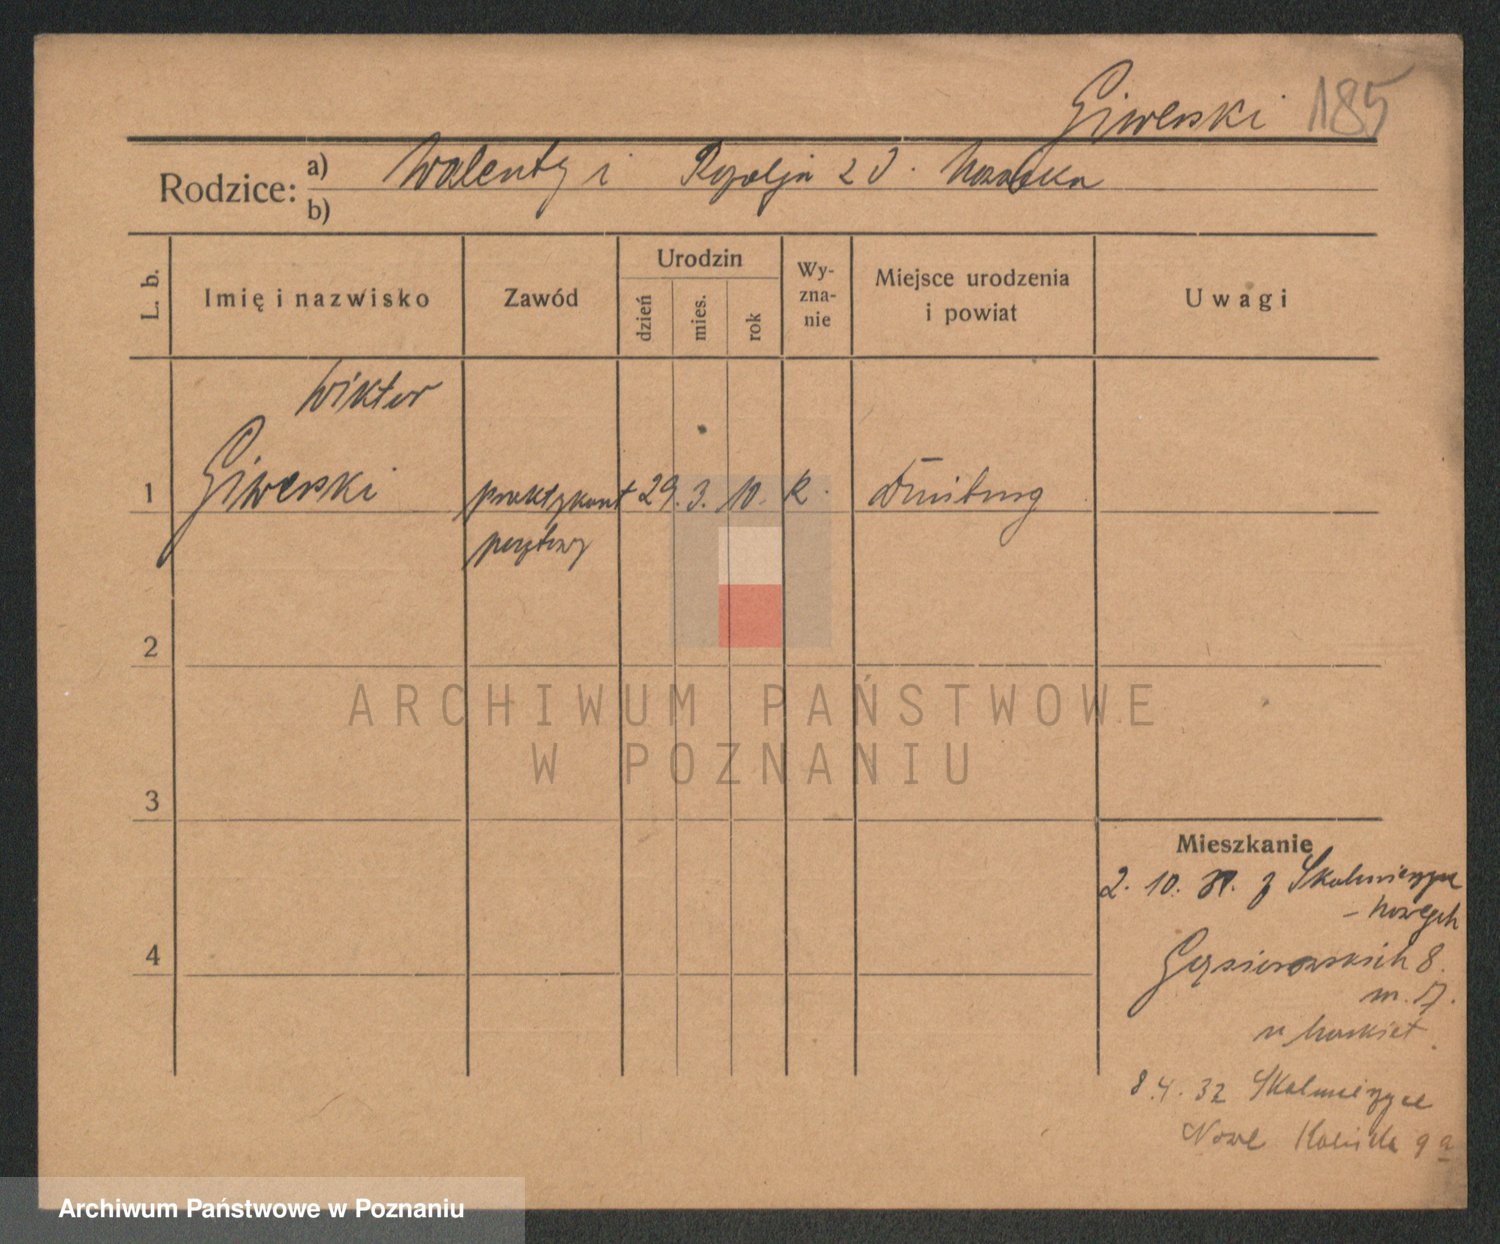 Giwerski 185
Rodzice: a) Walenty i Rozalja z d.
b)
L. b.
Imię i nazwisko
Zawód
Urodzin
dzień
mies.
rok
Wy-
zna-
nie
Miejsce urodzenia
i powiat
Uwagi
Wiktor
1 Giwerski praktykant 29. 3. 10. k. Duisburg
pocztowy
2
3
4
Mieszkanie
2. 10. 31. z Skalmierzyc
- Nowych
Gąsiorowskich 8.
m. 17.
u
8.4.32 Skalmierzyce
Nowe Kaliska 9a
ARCHIWUM PAŃSTWOWE
W POZNANIU
Archiwum Państwowe w Poznaniu